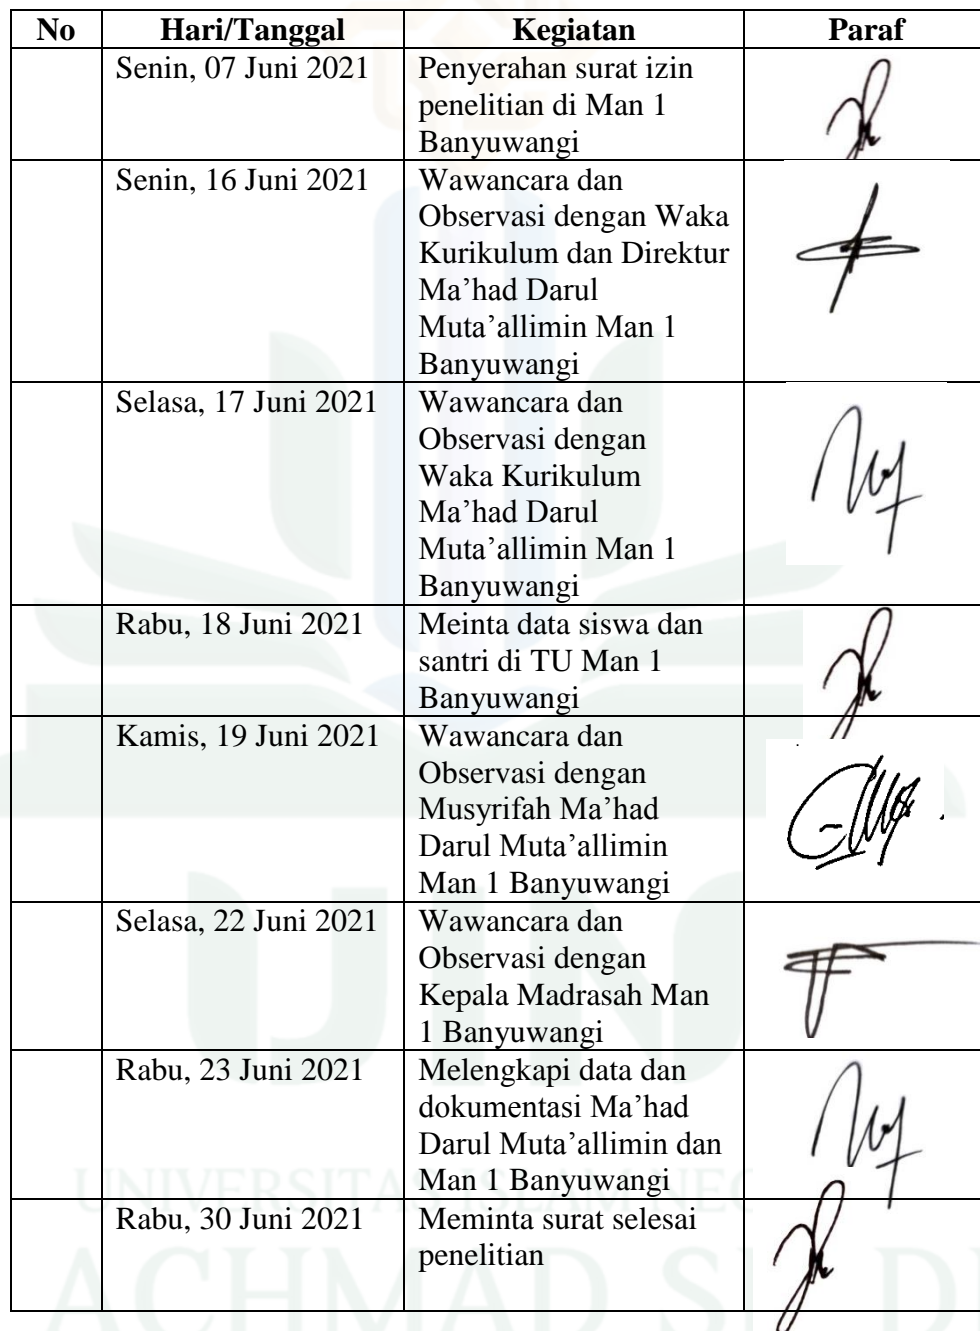 No Hari/Tanggal Kegiatan Paraf
Senin, 07 Juni 2021 Penyerahan surat izin
penelitian di Man 1
Banyuwangi
Senin, 16 Juni 2021 Wawancara dan
Observasi dengan Waka
Kurikulum dan Direktur
Ma’had Darul
Muta’allimin Man 1
Banyuwangi
Selasa, 17 Juni 2021 Wawancara dan
Observasi dengan
Waka Kurikulum
Ma’had Darul
Muta’allimin Man 1
Banyuwangi
Rabu, 18 Juni 2021 Meinta data siswa dan
santri di TU Man 1
Banyuwangi
Kamis, 19 Juni 2021 Wawancara dan
Observasi dengan
Musyrifah Ma’had
Darul Muta’allimin
Man 1 Banyuwangi
Selasa, 22 Juni 2021 Wawancara dan
Observasi dengan
Kepala Madrasah Man
1 Banyuwangi
Rabu, 23 Juni 2021 Melengkapi data dan
dokumentasi Ma’had
Darul Muta’allimin dan
Man 1 Banyuwangi
Rabu, 30 Juni 2021 Meminta surat selesai
penelitian
UIN
UNIVERSITAS ISLAM NEG
ACHMAD SI DI